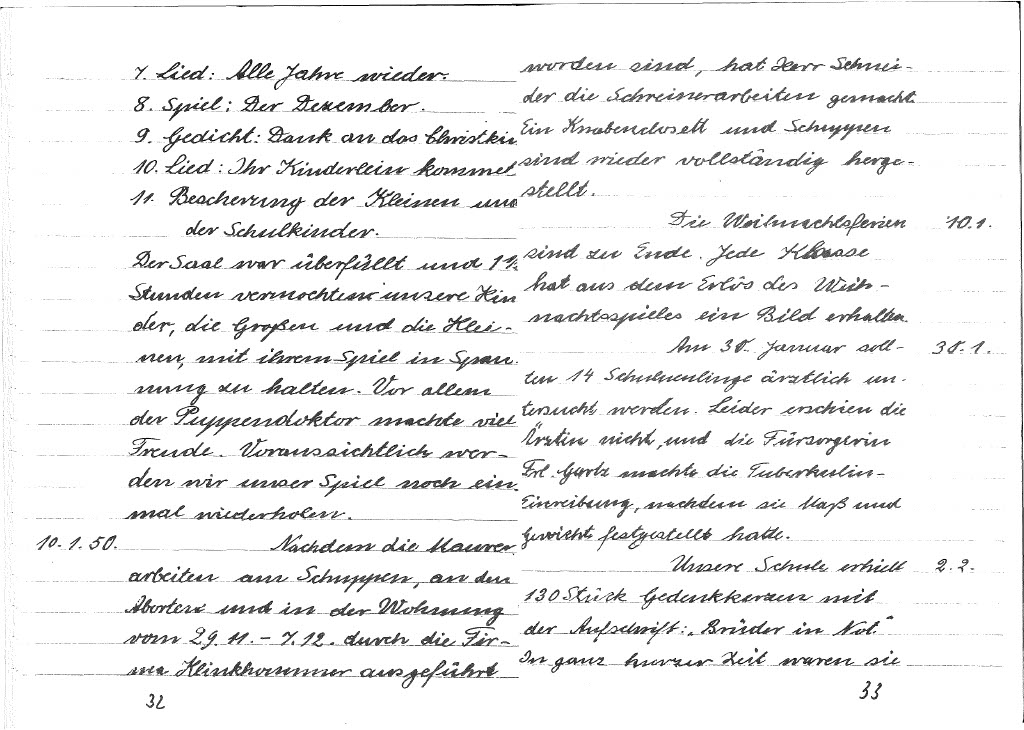 7. Lied: Alle Jahre wieder.
8. Spiel: Der Dezember.
9. Gedicht: Dank an das Christkin
10. Lied: Ihr Kinderlein kommet
11. Bescherung der Kleinen und
der Schulkinder.
Der Saal war überfüllt und 1½
Stunden vermochten unsere Kin
der, die Großen und die Klei-
nen, mit ihrem Spiel in Span
nung zu halten. Vor allem
der Puppendoktor machte viel
Freude. Voraussichtlich wer-
den wir unser Spiel noch ein
mal wiederholen.
10.1.50. Nachdem die Maurer
arbeiten am Schuppen, an den
Aborten und in der Wohnung
vom 29.11. – 7.12. durch die Fir-
ma Klinkhammer ausgeführt
32
worden sind, hat Herr Schnei-
der die Schreinerarbeiten gemacht.
Ein Knabenclosett und Schuppen
sind wieder vollständig herge-
stellt.
Die Weihnachtsferien 10.1.
sind zu Ende. Jede Klasse
hat aus dem Erlös des Weih-
nachtsspieles ein Bild erhalten.
Am 30. Januar soll- 30.1.
ten 14 Schulneulinge ärztlich un-
tersucht werden. Leider erschien die
Ärztin nicht, und die Fürsorgerin
Frl. Gartz machte die Tuberkulin-
Einreibung, nachdem sie Maß und
Gewicht festgestellt hatte.
Unsere Schule erhielt 2.2.
130 Stück Gedenkkerzen mit
der Aufschrift: „Brüder in Not."
In ganz kurzer Zeit waren sie
33